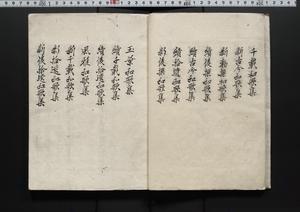 千載和歌集
新古今和歌集
新勅撰和歌集
續後撰和歌集
續古今和歌集
續拾遺和歌集
新後撰和歌集
玉葉和歌集
續千載和歌集
續後拾遺和歌集
風雅和歌集
新千載和歌集
新拾遺和歌集
新後拾遺和歌集